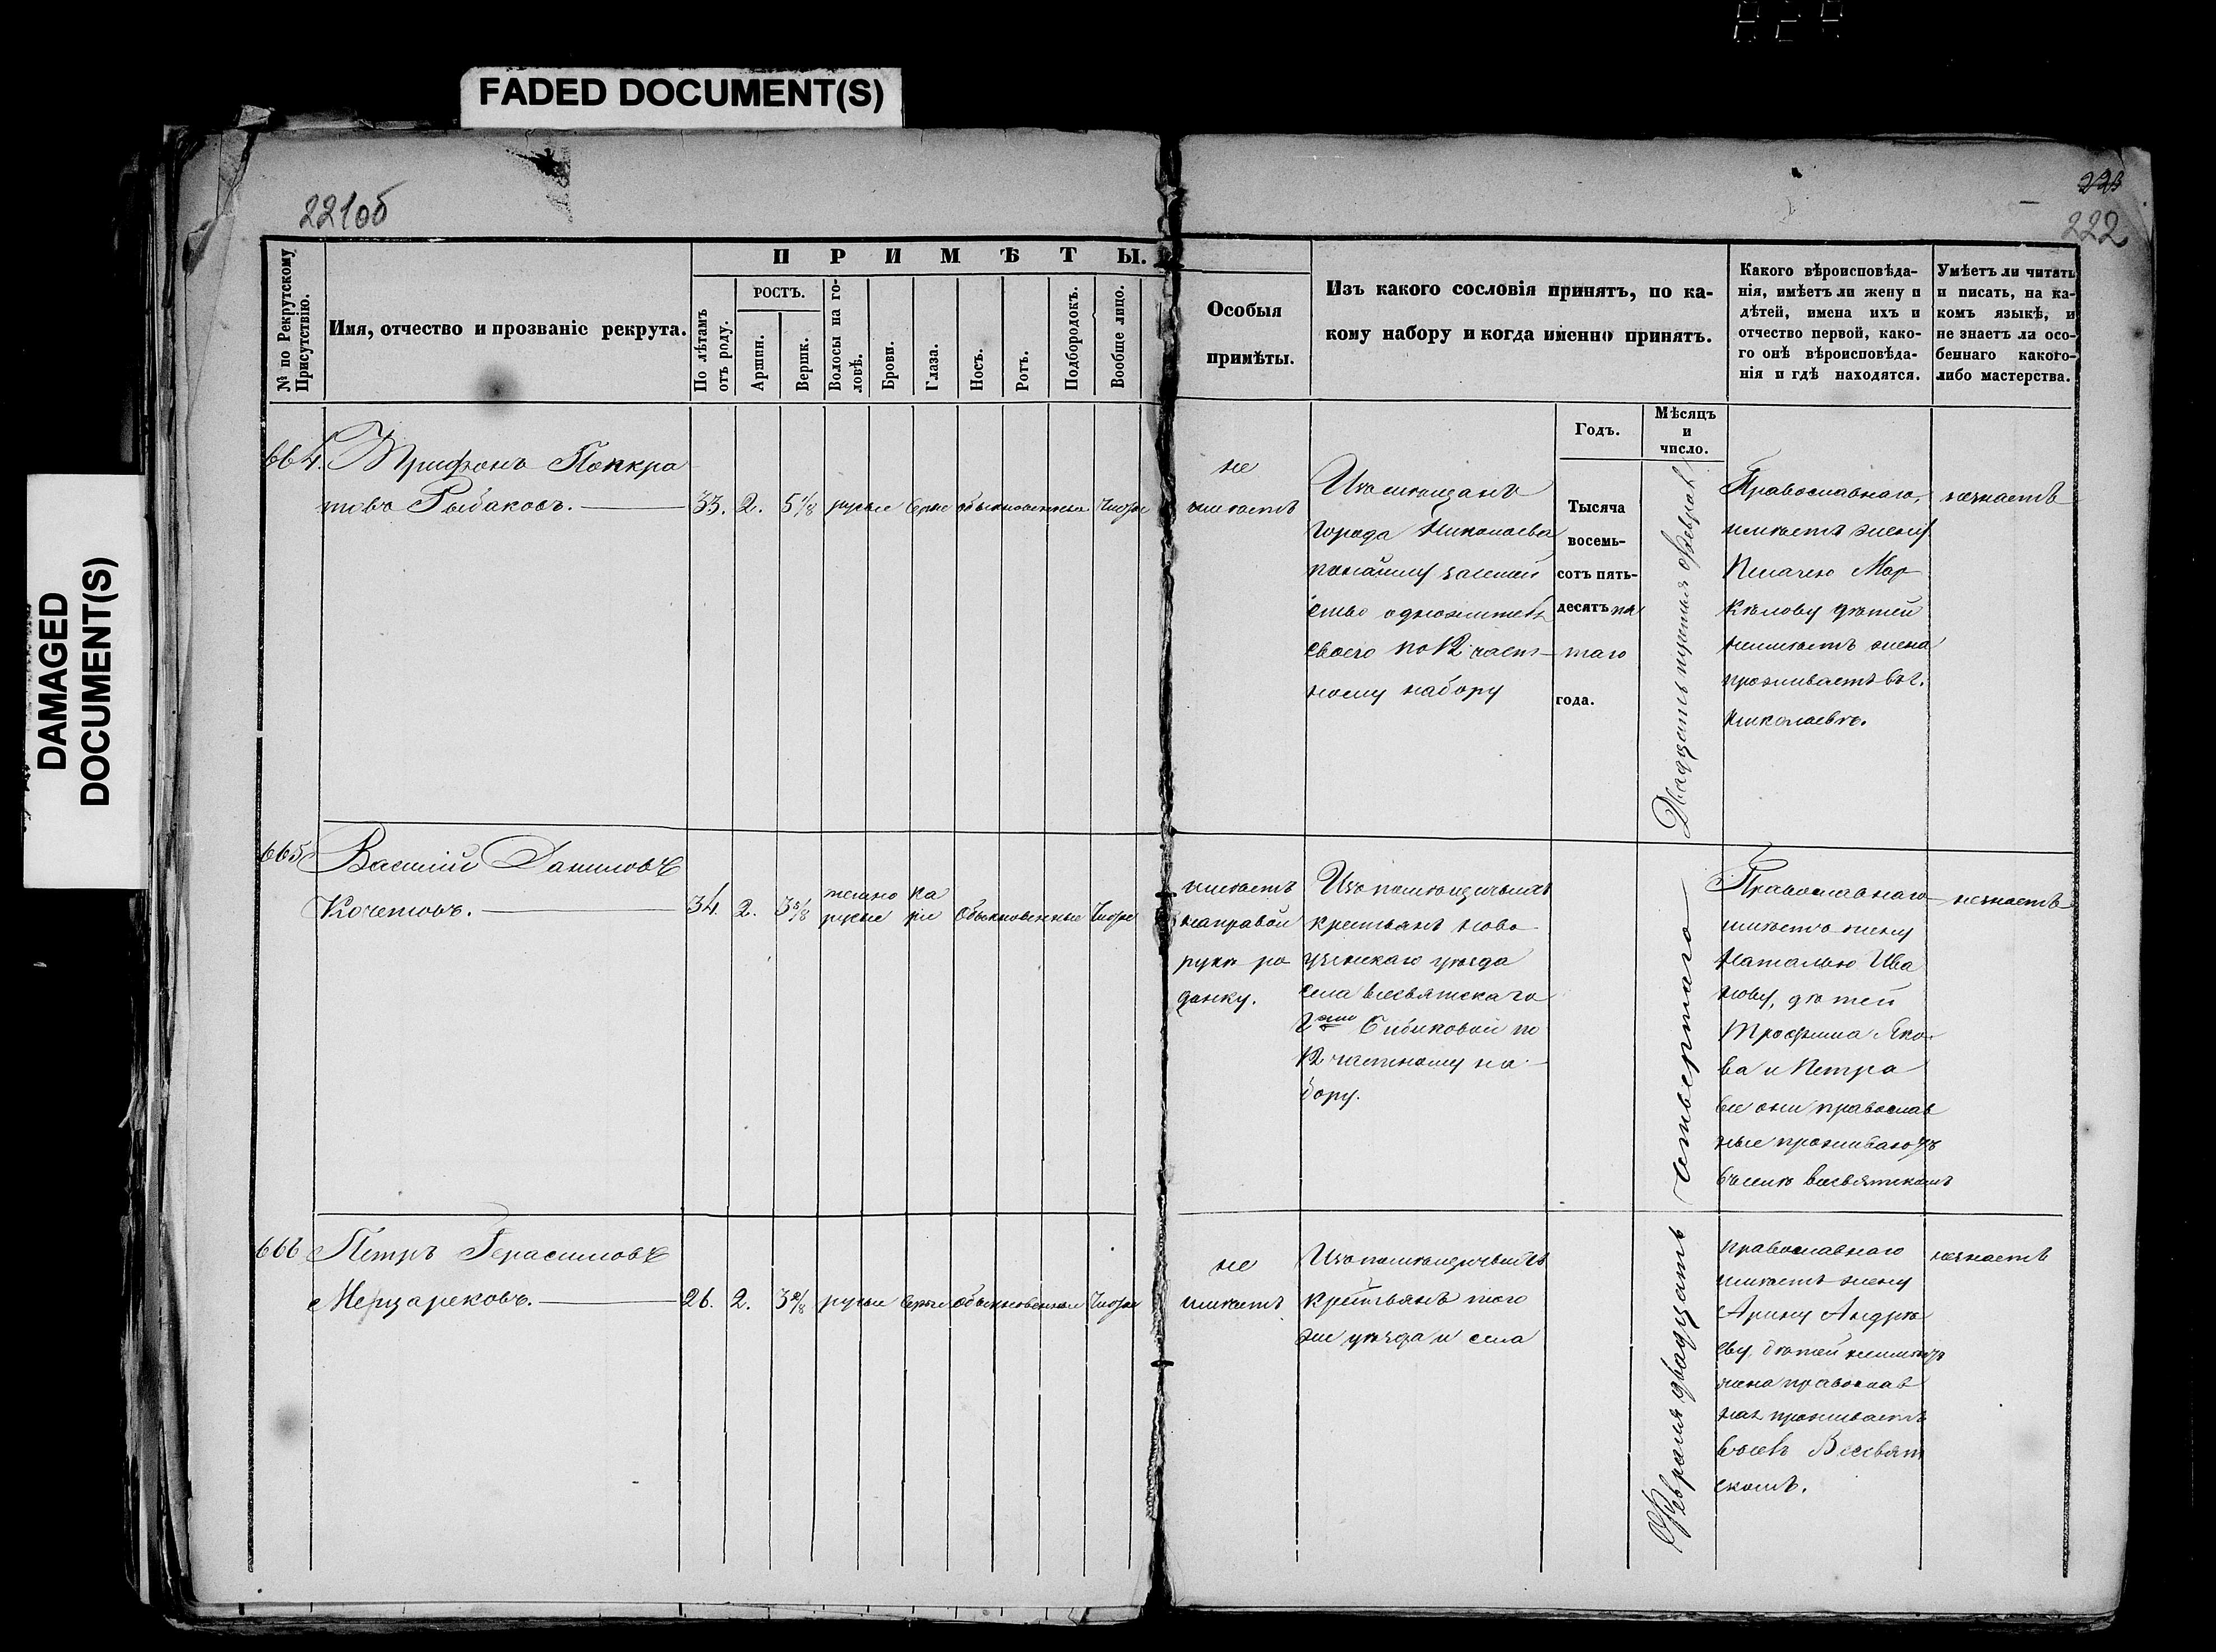 FADED DOCUMENT(S)
DAMAGED
DOCUMENT(S)
221об
223
222
№ по Рекрутскому
Присутствію.
Имя, отчество и прозваніе рекрута.
ПРИМѢТЫ.
По лѣтамъ
отъ роду.
РОСТЪ.
Аршин.
Вершк.
Волосы на го-
ловѣ.
Брови.
Глаза.
Носъ.
Ротъ.
Подбородокъ.
Вообще лицо.
Особыя
примѣты.
Изъ какого сословія принятъ, по ка-
кому набору и когда именно принятъ.
Какого вѣроисповѣда-
нія, имѣетъ ли жену и
дѣтей, имена ихъ и
отчество первой, како-
го онѣ вѣроисповѣда-
нія и гдѣ находятся.
Умѣетъ ли читать
и писать, на ка-
комъ языкѣ, и
не знаетъ ли осо-
беннаго какого-
либо мастерства.
Годъ.
Мѣсяцъ
и
число.
664. Трифонъ Понкра
товъ Рыбаковъ.
33. 2. 5 1/8 русые серые обыкновенные чистое
не
имѣетъ
Изъ мѣщанъ
города Николаева
по найму за семей
ство одножителя
своего по 12 част-
ному набору
Тысяча
восемь-
сотъ пять-
десятъ пя
таго
года.
Двадцать третья Февраля
Православнаго,
имѣетъ жену
Пелагею Мар
кѣлову дѣтей
неимѣетъ жена
проживаетъ въ г.
Николаевѣ.
незнаетъ
665 Василій Даниловъ
Кочетовъ.
34. 2. 3 5/8 темно русые ка рие обыкновенные чистое
имѣетъ
направой
рукѣ ро
динку.
Изъ помѣщичьихъ
крестьянъ Ново
узенскаго уѣзда
села Всесвятскаго
Гжи Бибиковой по
12 частному на-
бору.
четвертаго
Православнаго
имѣетъ жену
Наталью Ива
нову, дѣтей
Трофима Яко-
ва и Петра
все они православ
ные проживаютъ
въ селѣ Всесвятскомъ
незнаетъ
666 Петръ Герасимовъ
26. 2. 3 2/8 русые серые обыкновенные чистое
не
имѣетъ
Изъ помѣщичьихъ
крестьянъ того
же уѣзда и села
Февраля двадцать
православнаго
имѣетъ жену
Арину Андрѣ
еву, дѣтей неимѣетъ
жена православ
ная проживаетъ
въ селѣ Всесвят
скомъ.
незнаетъ